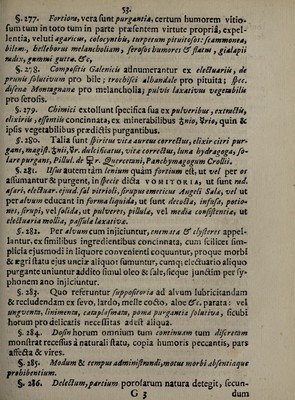 53.
§. 277. Fortiora, vera sunt purgantia, certum humorem vitio-
sum tum in toto tum in parte præsentem virtute propriâ, expel-
lentia, veluti agaricus, colocynthis, turpeum pituitosos: scammonea,
bilem, helleborus melancholiam, serosos humores & flatus, gialapii
radix, gummi gutta. &c,
§. 278. Composita Galenicis adnumerantur ex electuariis, de
prunis solutivum pro bile; trochisci alhandale pro pituita; spec.
disena Montagnana pro melancholia; pulvis laxativus vegetabilis
pro serosis.
§. 279. Chimici extollunt specifica sua ex pulveribus, extractis,
elixiriis, essentiis concinnata, ex minerabilibus ♁nio, ☿rio, quin &
ipsis vegetabilibus prædictis purgantibus.
§. 280. Talia sunt spiritus vita aureus correctus, elixir citri pur-
gans, magist. ♁nii, ☿r. dulcificatus, vita correctus, luna hydragoga, so-
lare purgans, Pillul. de ☿r. Quercetani, Panchymagogum Crollii.
§. 281. Usus autem tàm lenium quàm fortium est, ut vel per os
assumantur & purgent, in specie dicta VOMITORIA, ut sunt rad.
asari, electuar. ejusd. sal vitrioli, sirupus emeticus Angeli Sala, vel ut
per alvum educant in forma liquida, ut sunt decocta, infusa, potio-
nes, sirupi, vel solida, ut pulveres, pillula, vel media consistentia, ut
electuaria mollia, passula laxativa.
§. 282. Per alvum cum injiciuntur, enemata & clysteres appel-
lantur, ex similibus ingredientibus concinnata, cum scilicet sim-
plicia ejusmodi in liquore convenienti coquuntur, proque morbi
& ægri statu ejus unciæ aliquot sumuntur, cumq; electuario aliquo
purgante uniuntur addito simul oleo & sale, sicque junctim per sy-
phonem ano injiciuntur.
§. 283. Quo referuntur suppositoria ad alvum lubricitandam
& recludendam ex sevo, lardo, melle cocto, aloe &c. parata: vel
unguenta, linimenta, cataplasmata, poma purgantia solutiva, sicubi
horum pro delicatis necessitas adest aliqua.
§. 284. Dosin horum omnium tum continuam tum discretam
monstrat recessus à naturali statu, copia humoris peccantis, pars
affecta & vires.
§. 285. Modum & tempus administrandi, motus morbi absentiaque
prohibentium.
§. 286. Delectum, partium pororarum natura detegit, secun-
G 3 dum